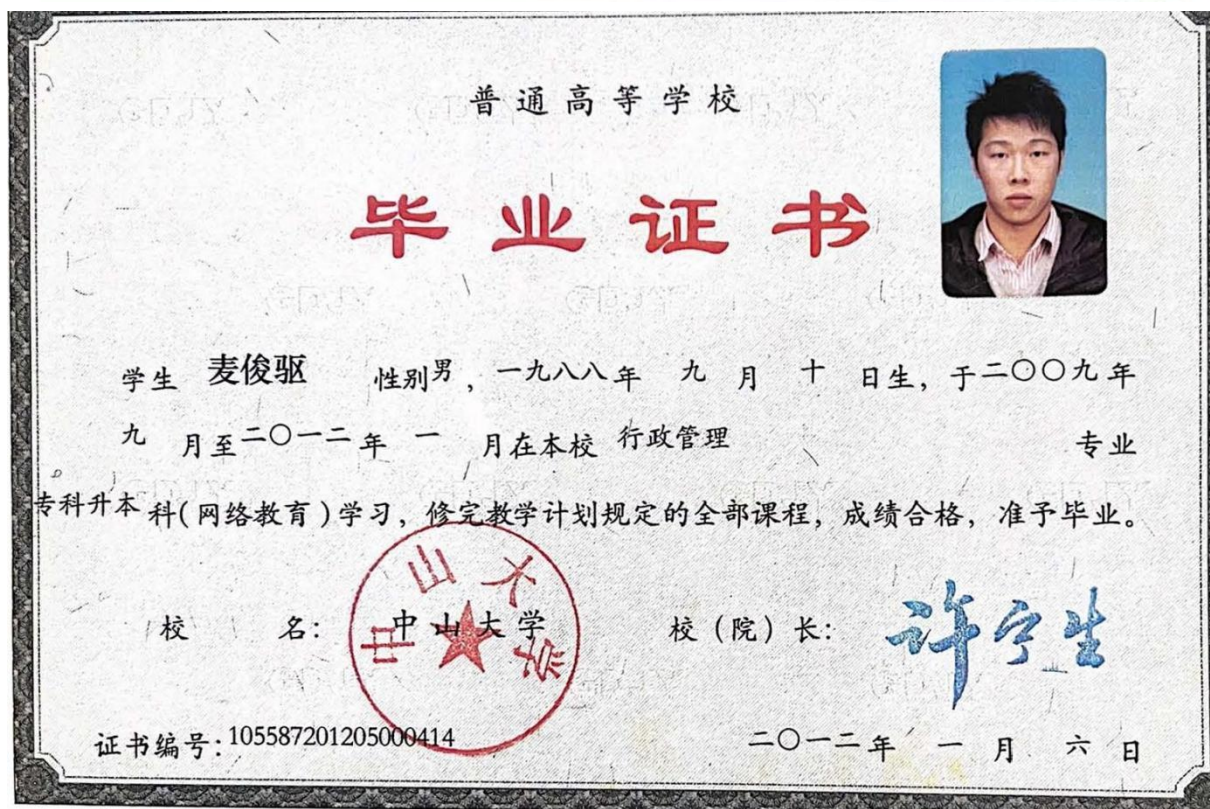 普通高等学校
毕业证书
学生 麦俊驱 性别男，一九八八年 九 月 十 日生，于二〇〇九年
九 月至二〇一二年 一 月在本校 行政管理 专业
专科升本科(网络教育)学习，修完教学计划规定的全部课程，成绩合格，准予毕业。
校 名：中山大学 校（院）长：许宁生
中山大学
证书编号：105587201205000414 二〇一二年 一 月 六 日